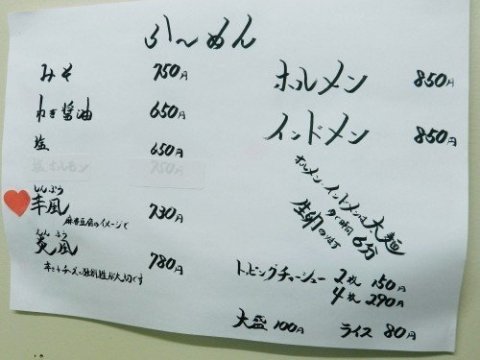 らーめん
みそ 750円
ねぎ醤油 650円
塩 650円
塩ホルモン 750円
しんぷう
辛風 730円
麻婆豆腐のイメージで
えんぷう
炎風 780円
キムチとチーズの独創性が大切です
ホルメン 850円
インドメン 850円
ホルメン インドメンは大麺
ゆで時間 6分
トッピングチャーシュー 2枚 150円
4枚 290円
大盛 100円 ライス 80円